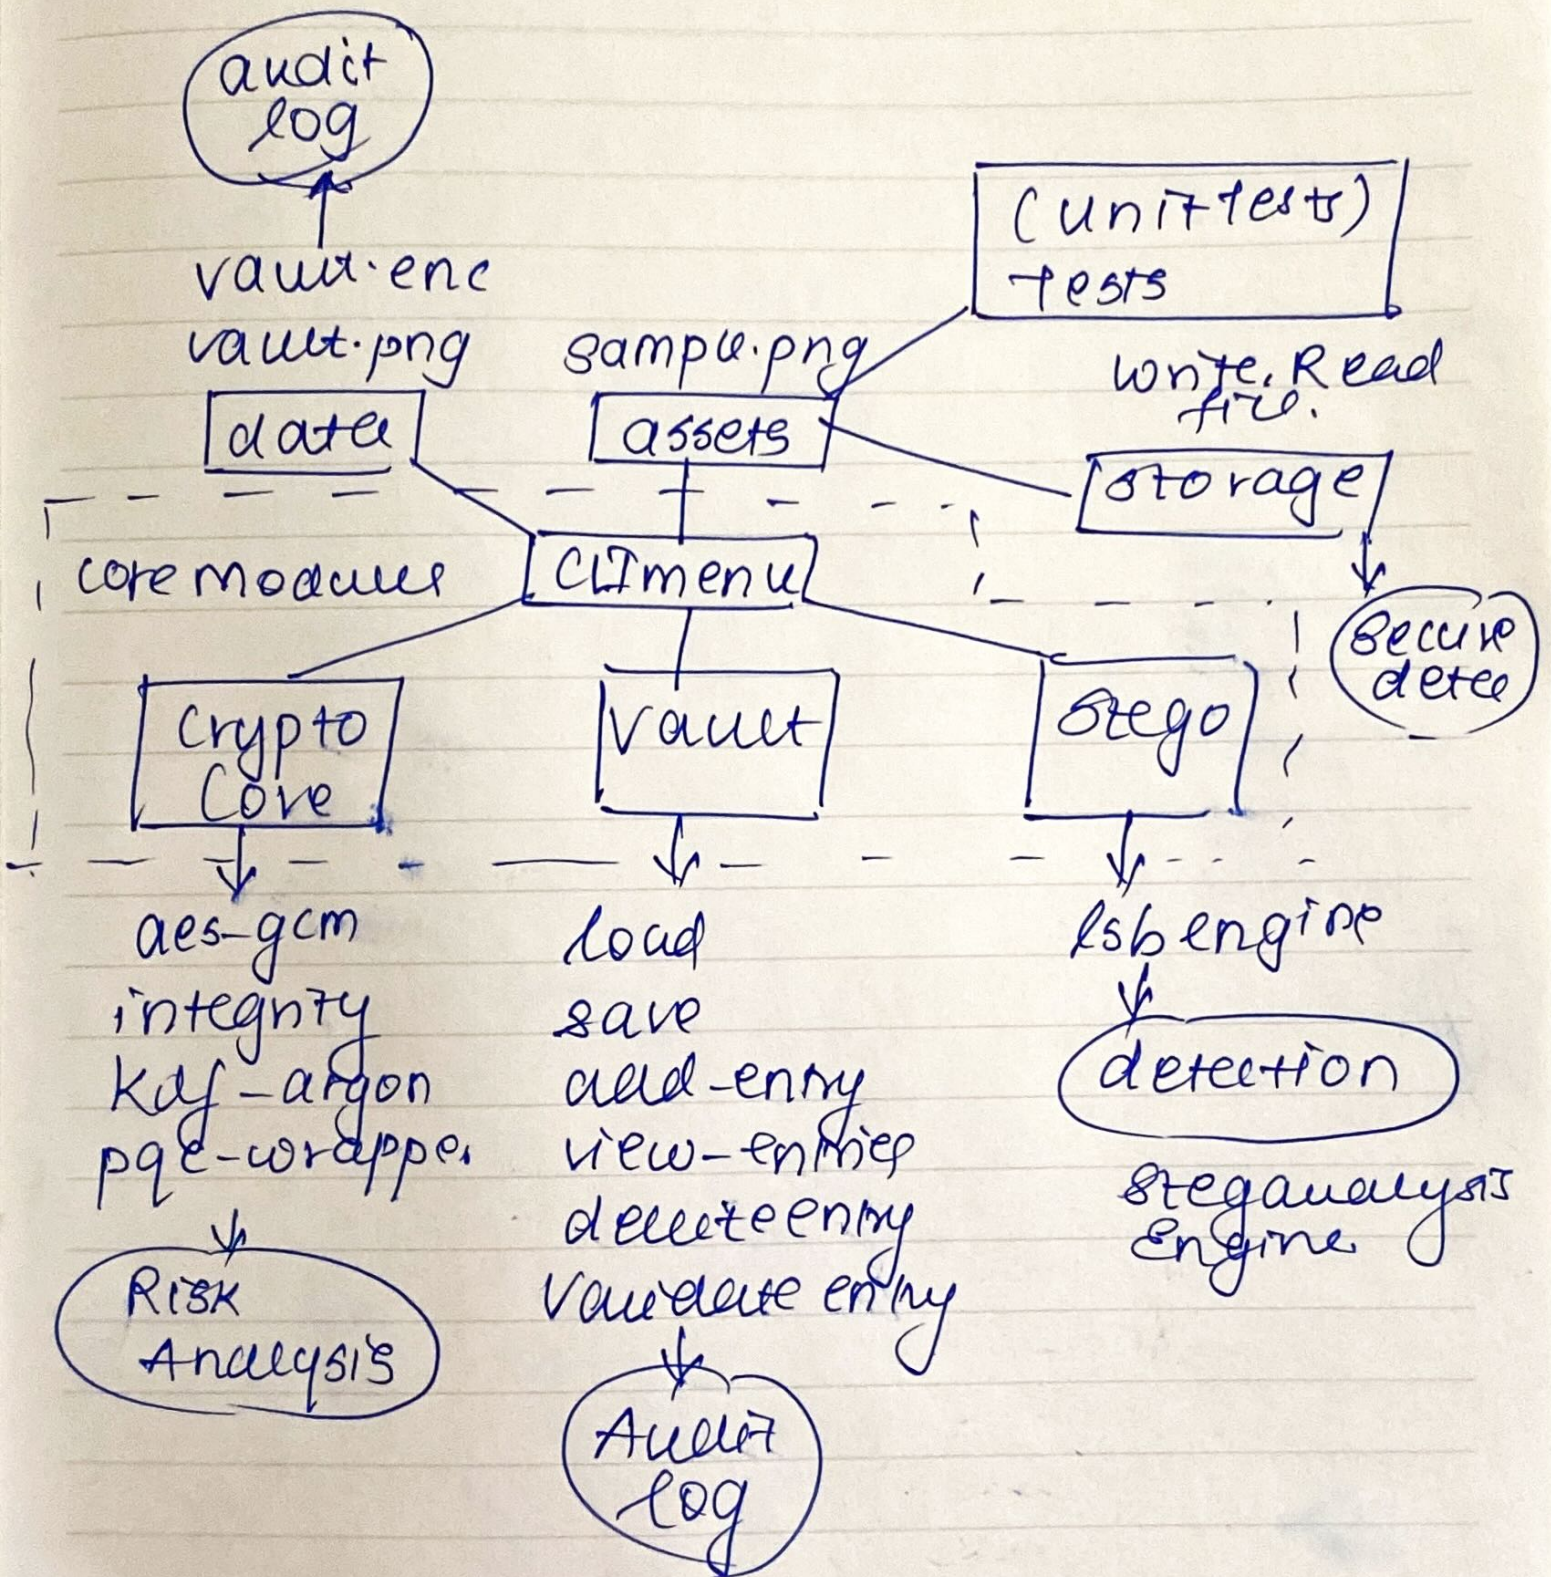 audit
log
vault.enc
vault.png
data
sample.png
assets
(unit tests)
tests
write, Read
file.
storage
secure
delete
core modules
CLI menu
Crypto
Core
Vault
Stego
aes-gcm
integrity
kdf-argon
pqc-wrapper
Risk
Analysis
load
save
add-entry
view-entries
delete entry
Validate entry
Audit
log
lsb engine
detection
steganalysis
Engine